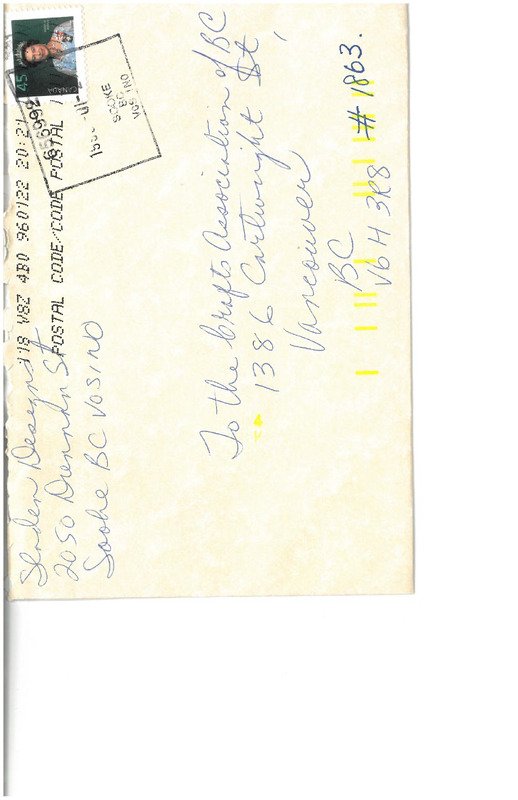 Designs
2050 Drennan St
Sooke BC V0S 1N0
118 V8Z 4B0 960122 20:21
POSTAL CODE/CODE POSTAL
45
CANADA
SOOKE
BC
V0S 1N0
To the Crafts Association of BC
1386 Cartwright St,
Vancouver
BC
V6H 3R8
# 1863.